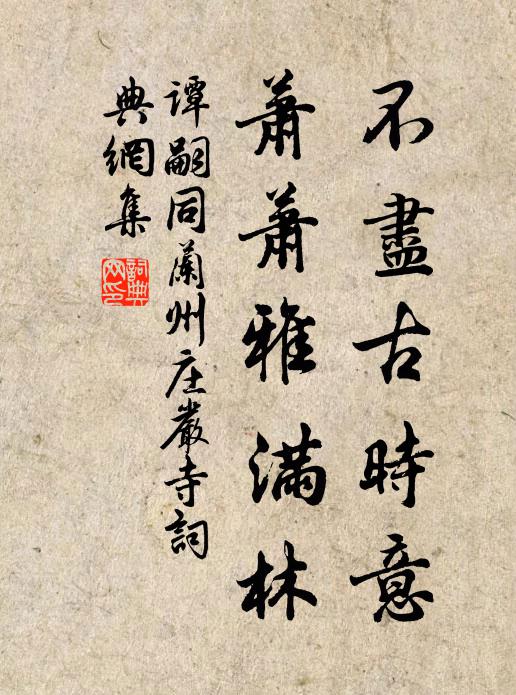 不盡古時意
蕭蕭雅滿林
譚嗣同蘭州庄嚴寺詞
典網集
詞典
网印